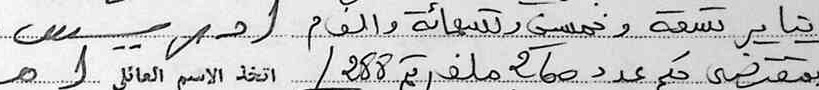 يناير تسعة وخمسين وتسعمائة والف ام
بمقتضى حكم عدد 260 ملف رقم 288 / اتخذ الاسم العائلي ا هـ